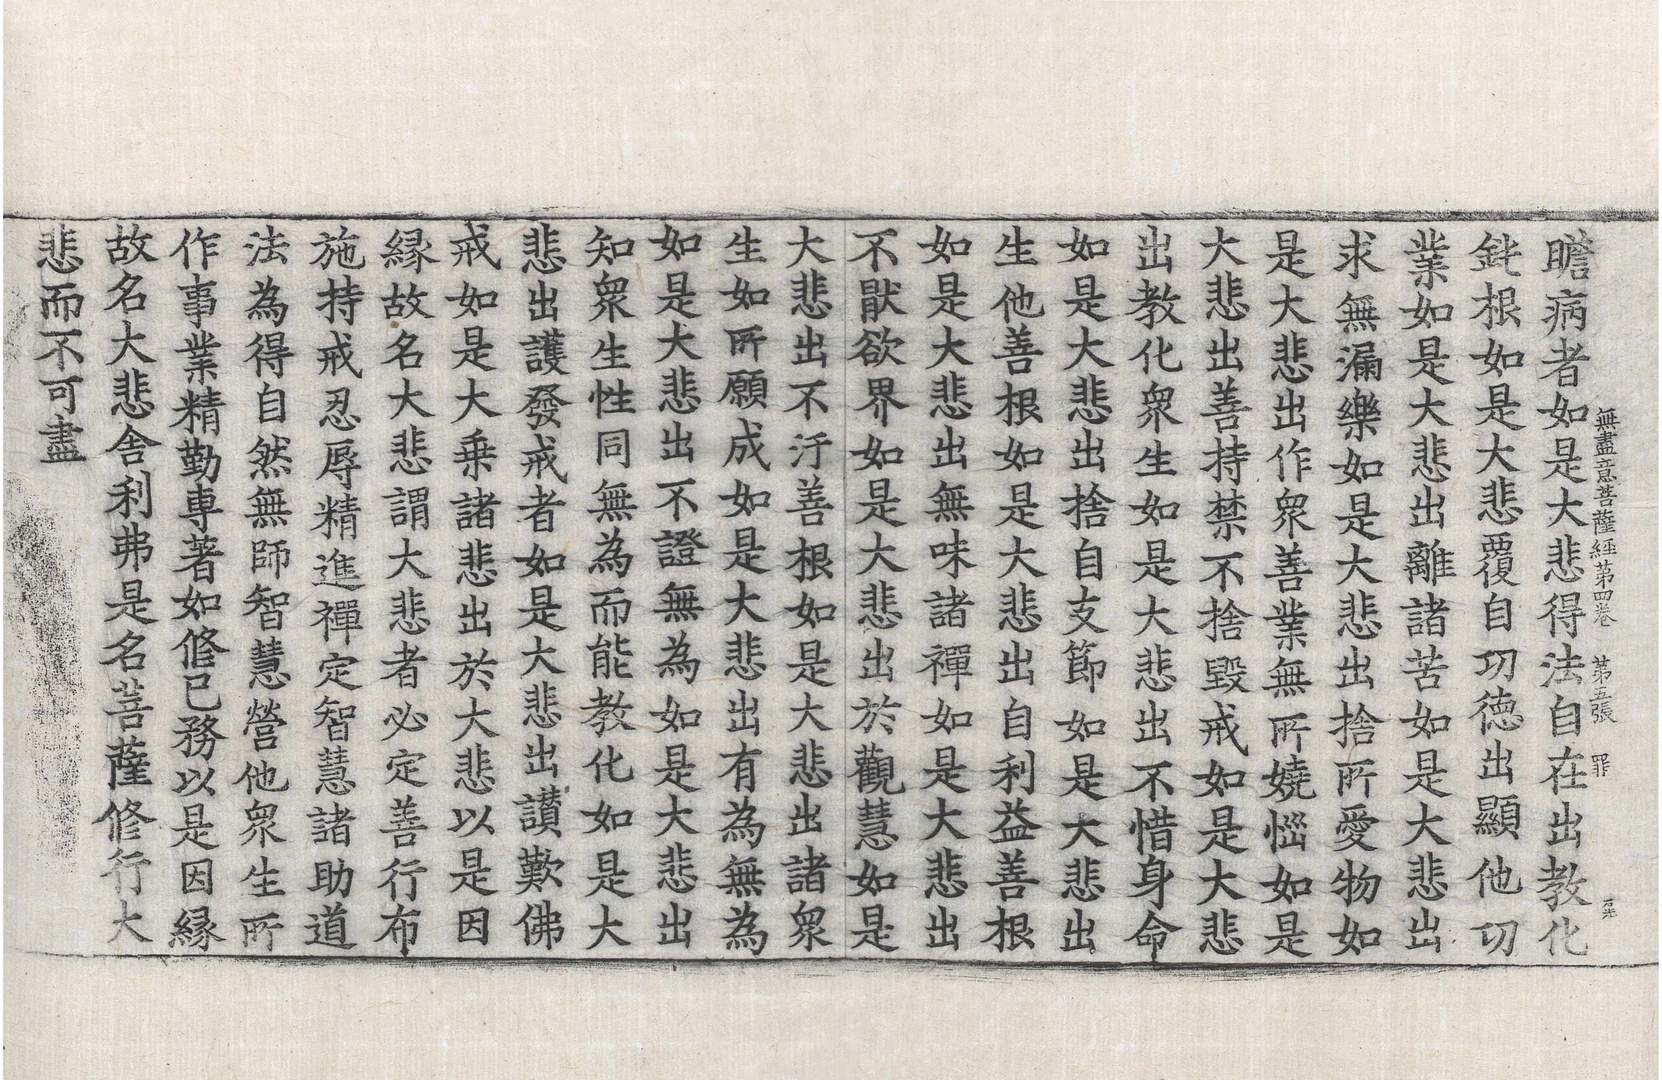 無盡意菩薩經第四卷　第五張　罪
瞻病者如是大悲得法自在出教化
鈍根如是大悲覆自功德出顯他功
業如是大悲出離諸苦如是大悲出
求無漏樂如是大悲出捨所愛物如
是大悲出作衆善業無所嬈惱如是
大悲出善持禁不捨毀戒如是大悲
出教化衆生如是大悲出不惜身命
如是大悲出捨自支節如是大悲出
生他善根如是大悲出自利益善根
如是大悲出無味諸禪如是大悲出
不猒欲界如是大悲出於觀慧如是
大悲出不汙善根如是大悲出諸衆
生如所願成如是大悲出有為無為
如是大悲出不證無為如是大悲出
知衆生性同無為而能教化如是大
悲出護發戒者如是大悲出讃歎佛
戒如是大乗諸悲出於大悲以是因
縁故名大悲謂大悲者必定善行布
施持戒忍辱精進禪定智慧諸助道
法為得自然無師智慧營他衆生所
作事業精勤專著如修已務以是因縁
故名大悲舎利弗是名菩薩修行大
悲而不可盡